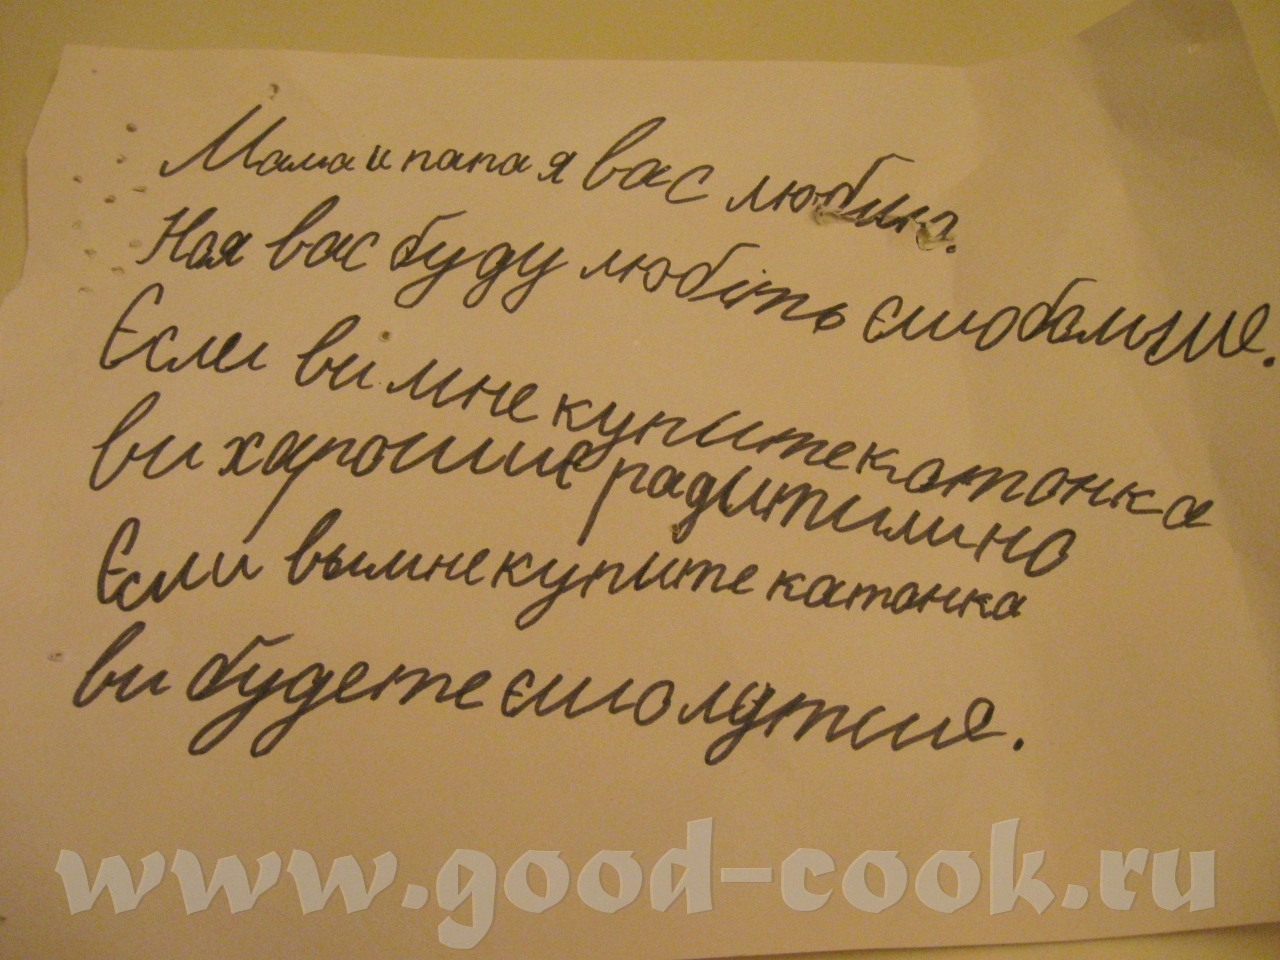 Мама и папа я вас люблю.
Ноя вас буду любіть єшобольше.
Єсли ви мне купитекотонка
ви харошиє радитилино
Єсли вымнекупите катонка
ви будете єшолутше.
www.good-cook.ru